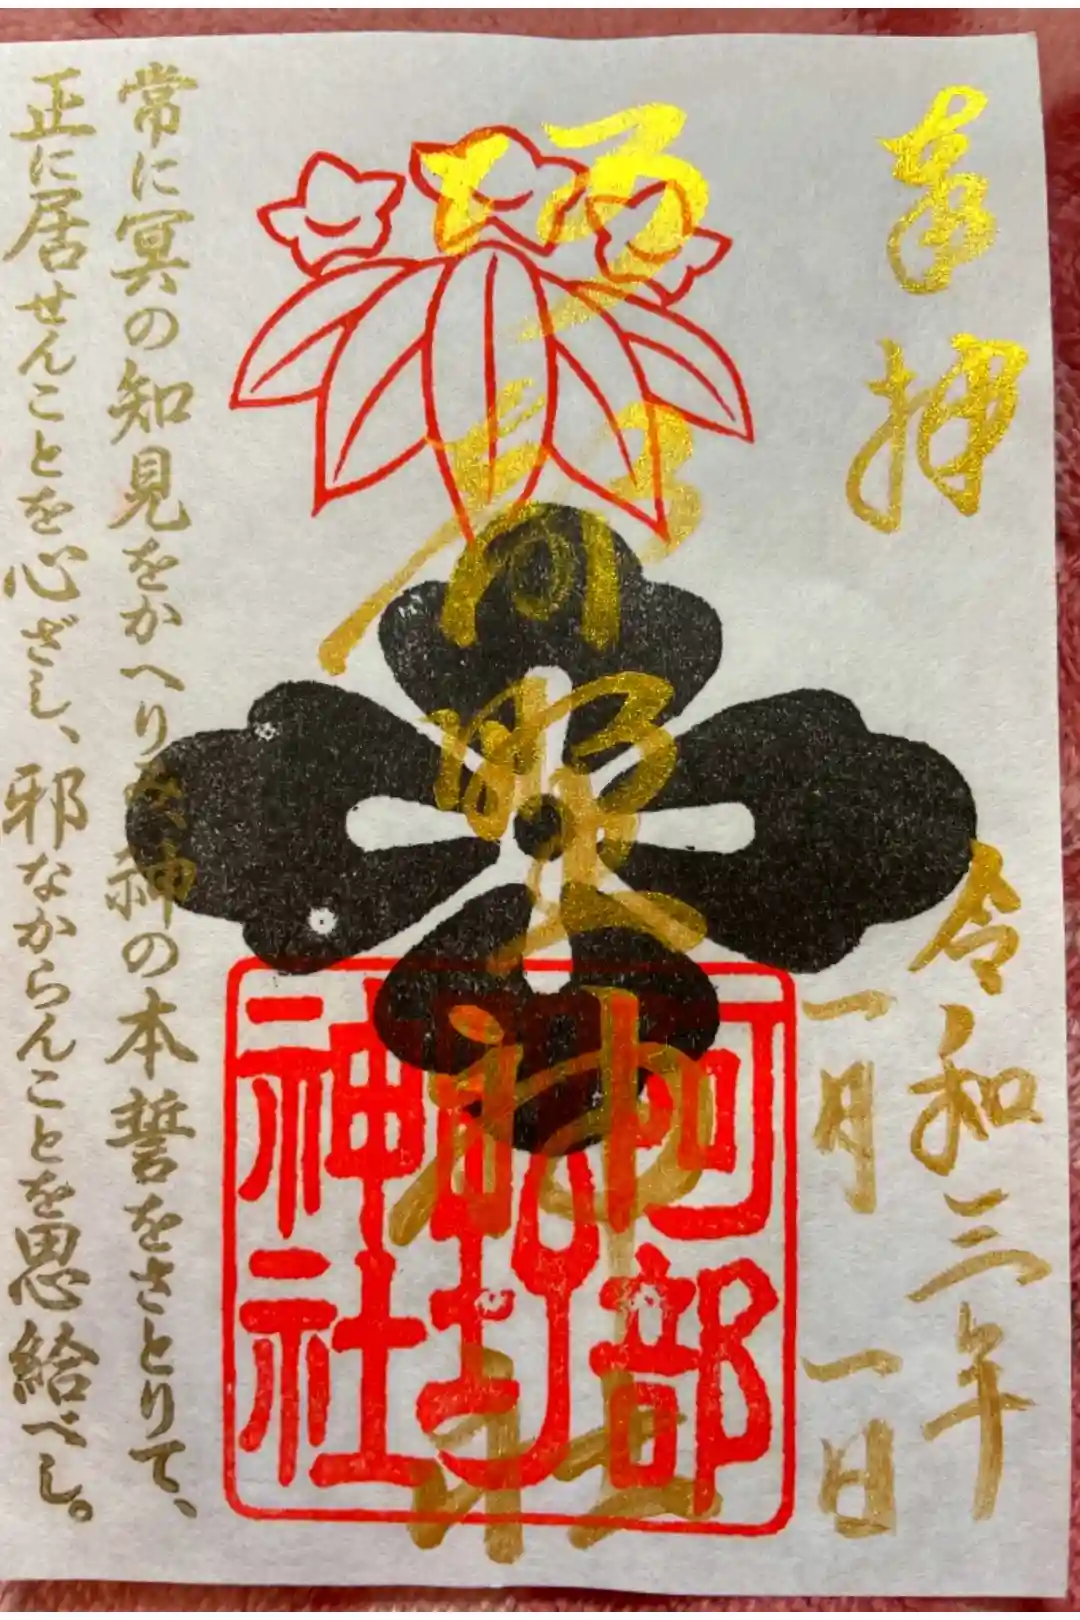 奉拝
令和三年
一月一日
阿部
野
神社
常に冥の知見をかへりみ、神の本誓をさとりて、
正に居せんことを心ざし、邪なからんことを思給べし。